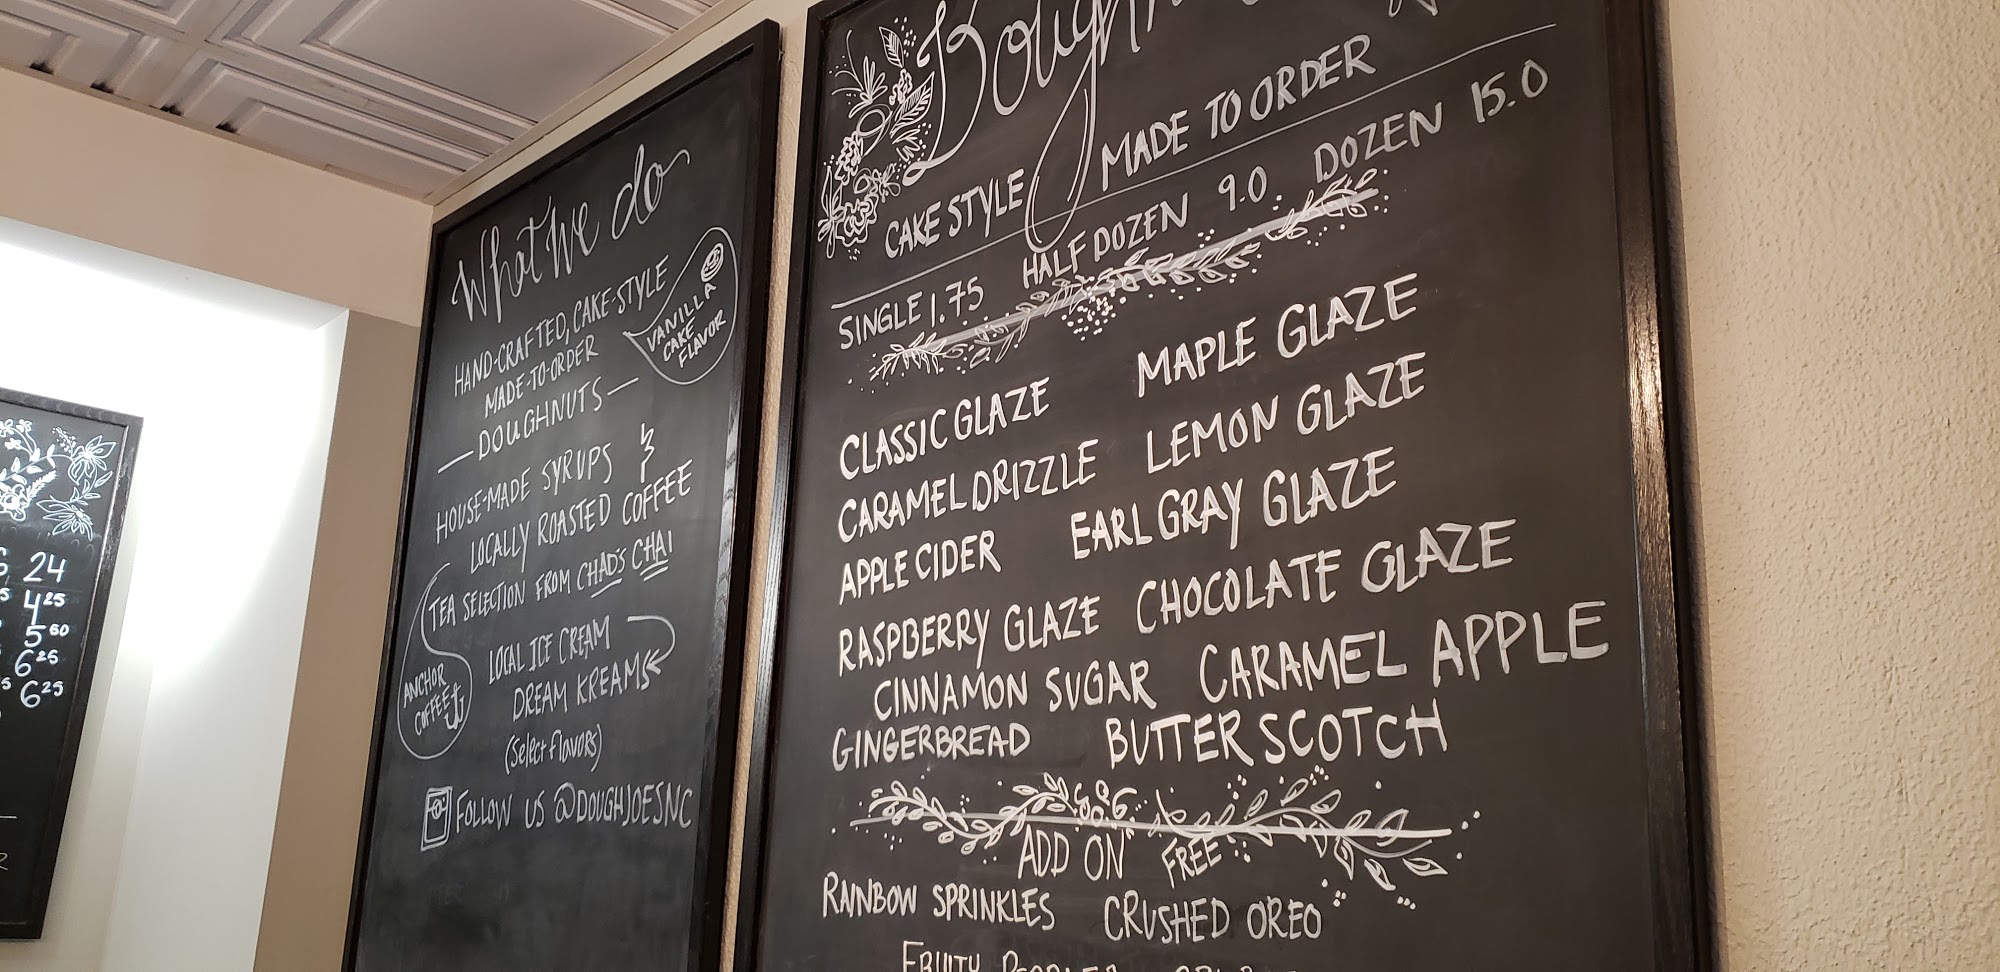 24
4 25
5 60
6 25
6 25
What we do
HAND-CRAFTED, CAKE-STYLE
MADE-TO-ORDER
DOUGHNUTS
VANILLA
CAKE
FLAVOR
HOUSE-MADE SYRUPS &
LOCALLY ROASTED COFFEE
TEA SELECTION FROM CHAD'S CHAI
ANCHOR
COFFEE
LOCAL ICE CREAM
DREAM KREAMS
(Select flavors)
FOLLOW US @DOUGHJOESNC
CAKE STYLE MADE TO ORDER
SINGLE 1.75 HALF DOZEN 9.0 DOZEN 15.0
CLASSIC GLAZE MAPLE GLAZE
CARAMEL DRIZZLE LEMON GLAZE
APPLE CIDER EARL GRAY GLAZE
RASPBERRY GLAZE CHOCOLATE GLAZE
CINNAMON SUGAR CARAMEL APPLE
GINGERBREAD BUTTERSCOTCH
ADD ON FREE
RAINBOW SPRINKLES CRUSHED OREO
FRUITY